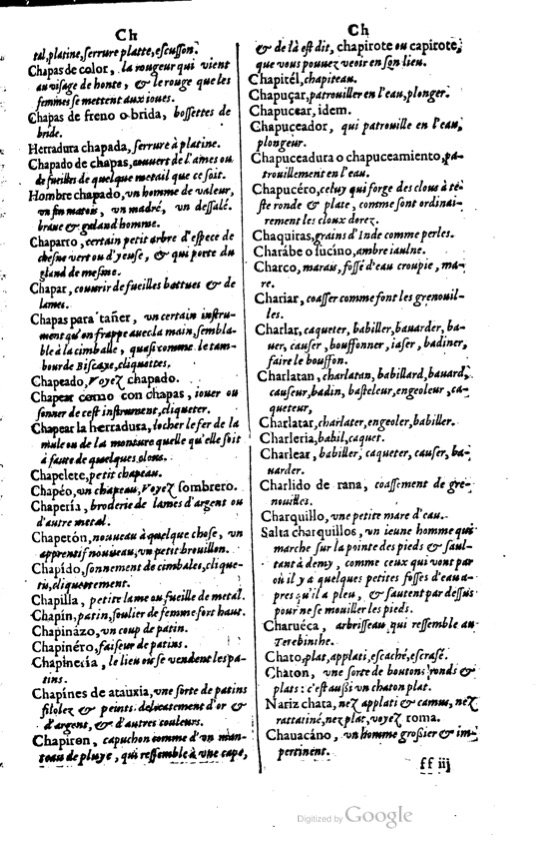 Ch
tal, platine, serrure platte, escusson.
Chapas de color, la rougeur qui vient
au visage de honte, & le rouge que les
femmes se mettent aux ioues.
Chapas de freno o brida, bossettes de
bride.
Herradura chapada, serrure à platine.
Chapado de chapas, couuert de l'ames ou
de fueilles de quelque metail que ce soit.
Hombre chapado, vn homme de valeur,
vn fin matois, vn madré, vn dessalé.
braue & galand homme.
Chaparro, certain petit arbre d'espece de
chesne vert ou d'yeuse, & qui porte du
gland de mesme.
Chapar, couurir de fueilles battues & de
lames.
Chapas para tañer, vn certain instru-
ment qu'on frappe auec la main, sembla-
ble à la cimballe, quasi comme le tam-
bour de Biscaye, cliquettes.
Chapeado, Voyez chapado.
Chapear como con chapas, iouer ou
sonner de cest instrument, cliqueter.
Chapear la herradura, locher le fer de la
mule ou de la monture quelle qu'elle soit
à faute de quelques clous.
Chapelete, petit chapeau.
Chapéo, vn chapeau, Voyez sombrero.
Chapería, broderie de lames d'argent ou
d'autre metal.
Chapetón, nouueau à quelque chose, vn
apprentif nouueau, vn petit brouillon.
Chapído, sonnement de cimbales, clique-
tis, cliquettement.
Chapilla, petite lame ou fueille de metal.
Chapín, patin, soulier de femme fort haut.
Chapinazo, vn coup de patin.
Chapinéro, faiseur de patins.
Chapinería, le lieu ou se vendent les pa-
tins.
Chapínes de atauxia, vne sorte de patins
filolez & peints delicatement d'or &
d'argent, & d'autres couleurs.
Chapiron, capuchon comme d'un man-
teau de pluye, qui ressemble à vne cape,
Ch
& de là est dit, chapirote ou capirote,
que vous pouuez veoir en son lieu.
Chapitél, chapiteau.
Chapuçar, patrouiller en l'eau, plonger.
Chapucear, idem.
Chapuçeador, qui patrouille en l'eau,
plongeur.
Chapuceadura o chapuceamiento, pa-
trouillement en l'eau.
Chapucéro, celuy qui forge des clous à te-
ste ronde & plate, comme sont ordinai-
rement les cloux dorez.
Chaquiras, grains d'Inde comme perles.
Charábe o lucino, ambre iaulne.
Charco, marais, fossé d'eau croupie, ma-
re.
Chariar, coasser comme font les grenouil-
les.
Charlar, caqueter, babiller, bauarder, ba-
uer, causer, bouffonner, iaser, badiner,
faire le bouffon.
Charlatan, charlatan, babillard, bauard,
causeur, badin, basteleur, engeoleur, ca-
queteur,
Charlatar, charlater, engeoler, babiller.
Charleria, babil, caquet.
Charlear, babiller, caqueter, causer, ba-
uarder.
Charlido de rana, coassement de gre-
nouilles.
Charquillo, vne petite mare d'eau.
Salta charquillos, vn ieune homme qui
marche sur la pointe des pieds & saul-
tant à demy, comme ceux qui vont par
où il y a quelques petites fosses d'eau a-
pres qu'il a pleu, & sautent par dessus
pour ne se mouiller les pieds.
Charuéca, arbrisseau qui ressemble au
Terebinthe.
Chato, plat, applati, escaché, escrasé.
Chaton, vne sorte de boutons ronds &
plats: c'est aussi vn chaton plat.
Nariz chata, nez applati & camus, nez
rattatiné, nez plat, voyez roma.
Chauacáno, vn homme grossier & im-
pertinent.
ff iij
Digitized by Google